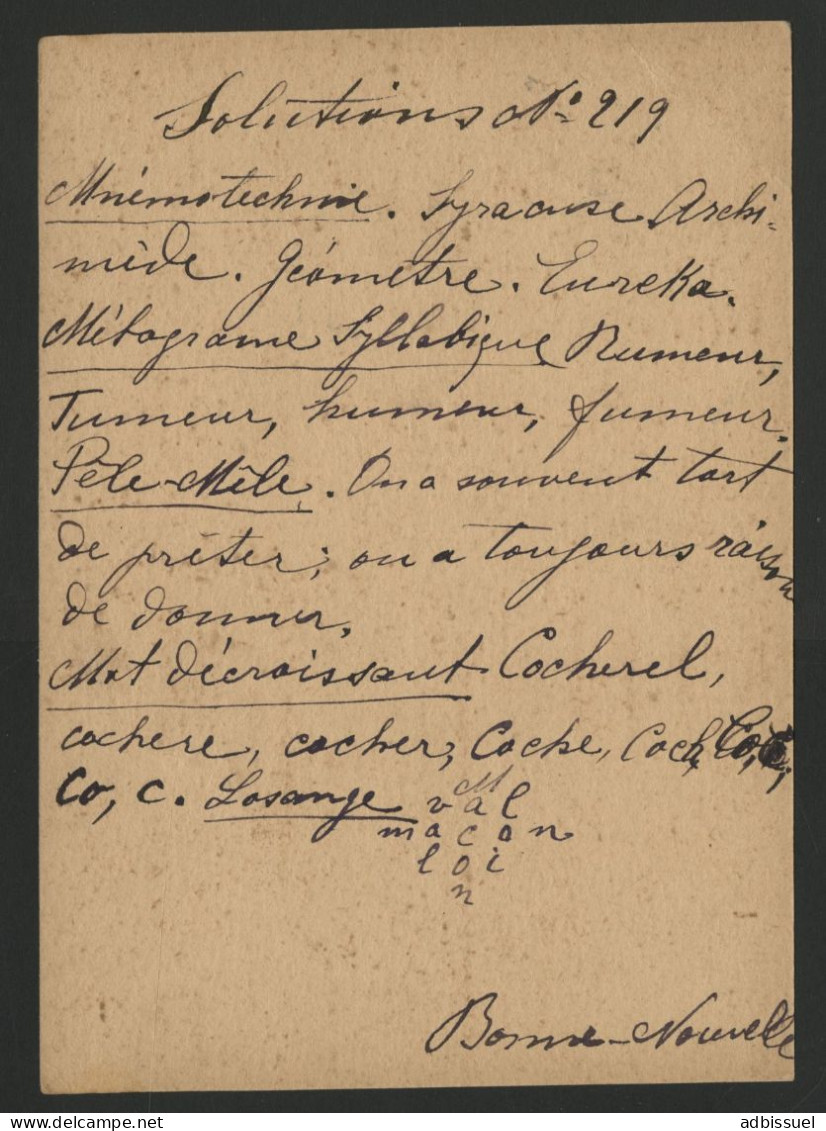 Solutions No. 219
Mnémotechnie. Syracuse Archi-
mède. Géomètre. Eureka.
Métagrame Syllabique Rumeur,
Tumeur, humeur, fumeur.
Pêle-Mêle. On a souvent tort
de prêter; on a toujours raison
de donner.
Mot décroissant Cocherel,
cochere, cocher, Coche, Coch, Co,
Co, c. Losange
M
v a l
m a c o n
l o i
n
Bonne-Nouvelle
adbissuel